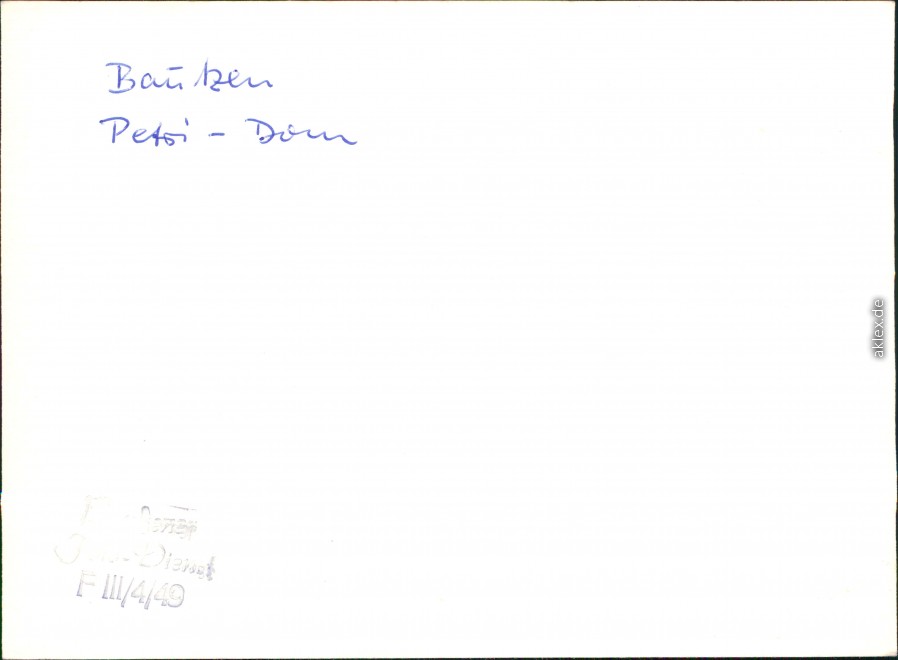 Bautzen
Petri - Dom
aklex.de
Dienst
F III/4/49